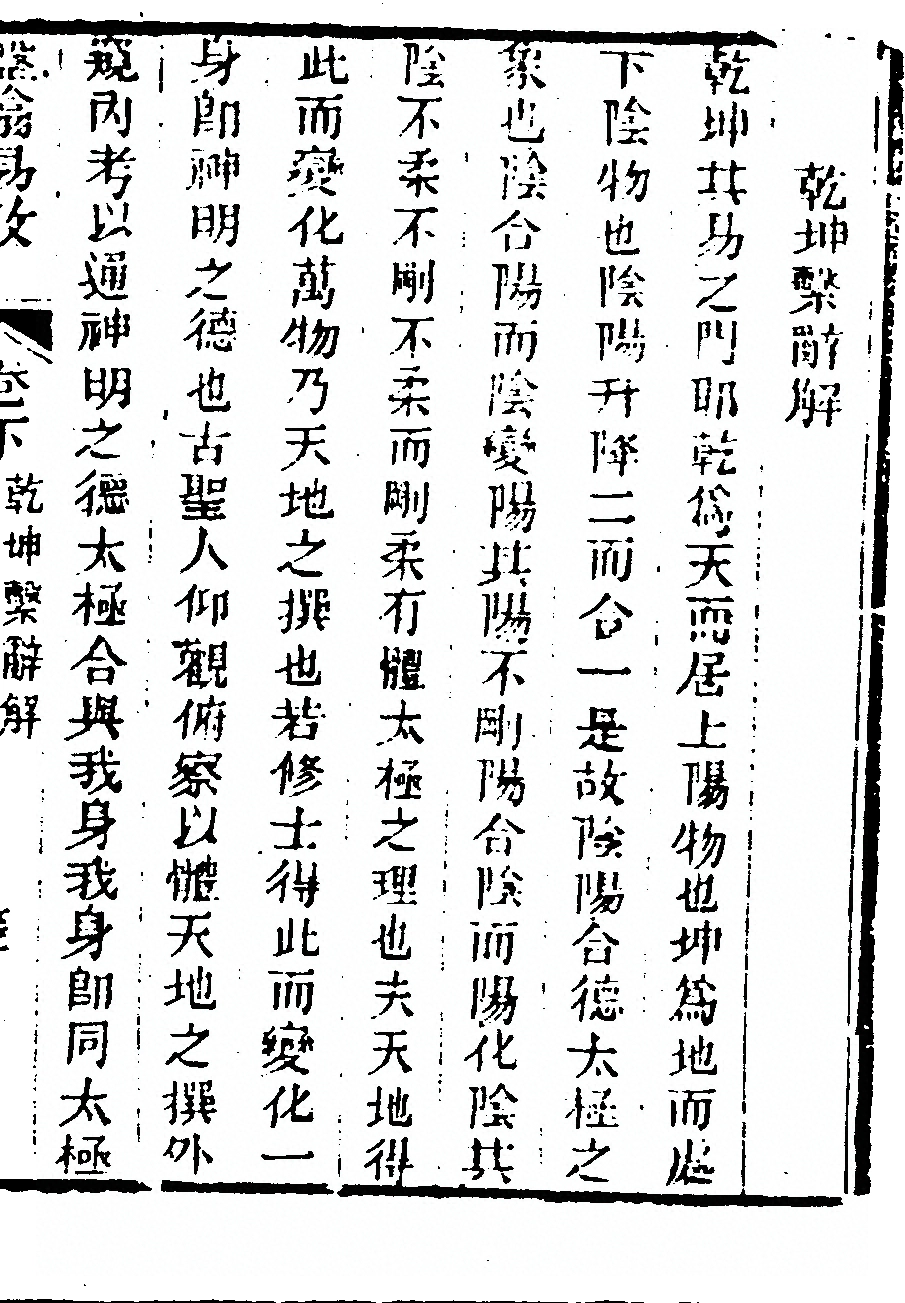 乾坤繫辭解
乾坤其易之門耶乾爲天而居上陽物也坤爲地而處
下陰物也陰陽升降二而合一是故陰陽合德太極之
象也陰合陽而陰變陽其陽不剛陽合陰而陽化陰其
陰不柔不剛不柔而剛柔有體太極之理也夫天地得
此而變化萬物乃天地之撰也若修士得此而變化一
身卽神明之德也古聖人仰觀俯察以體天地之撰外
窺內考以通神明之德太極合與我身我身卽同太極
易攷 卷下 乾坤繫辭解